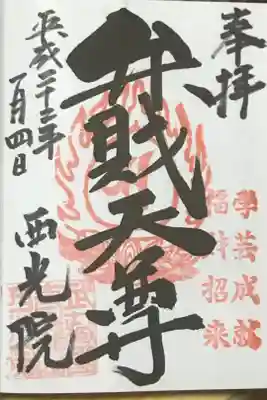 奉拝
學芸成就
福財招来
弁財天尊
西光院
平成二十三年
一月四日